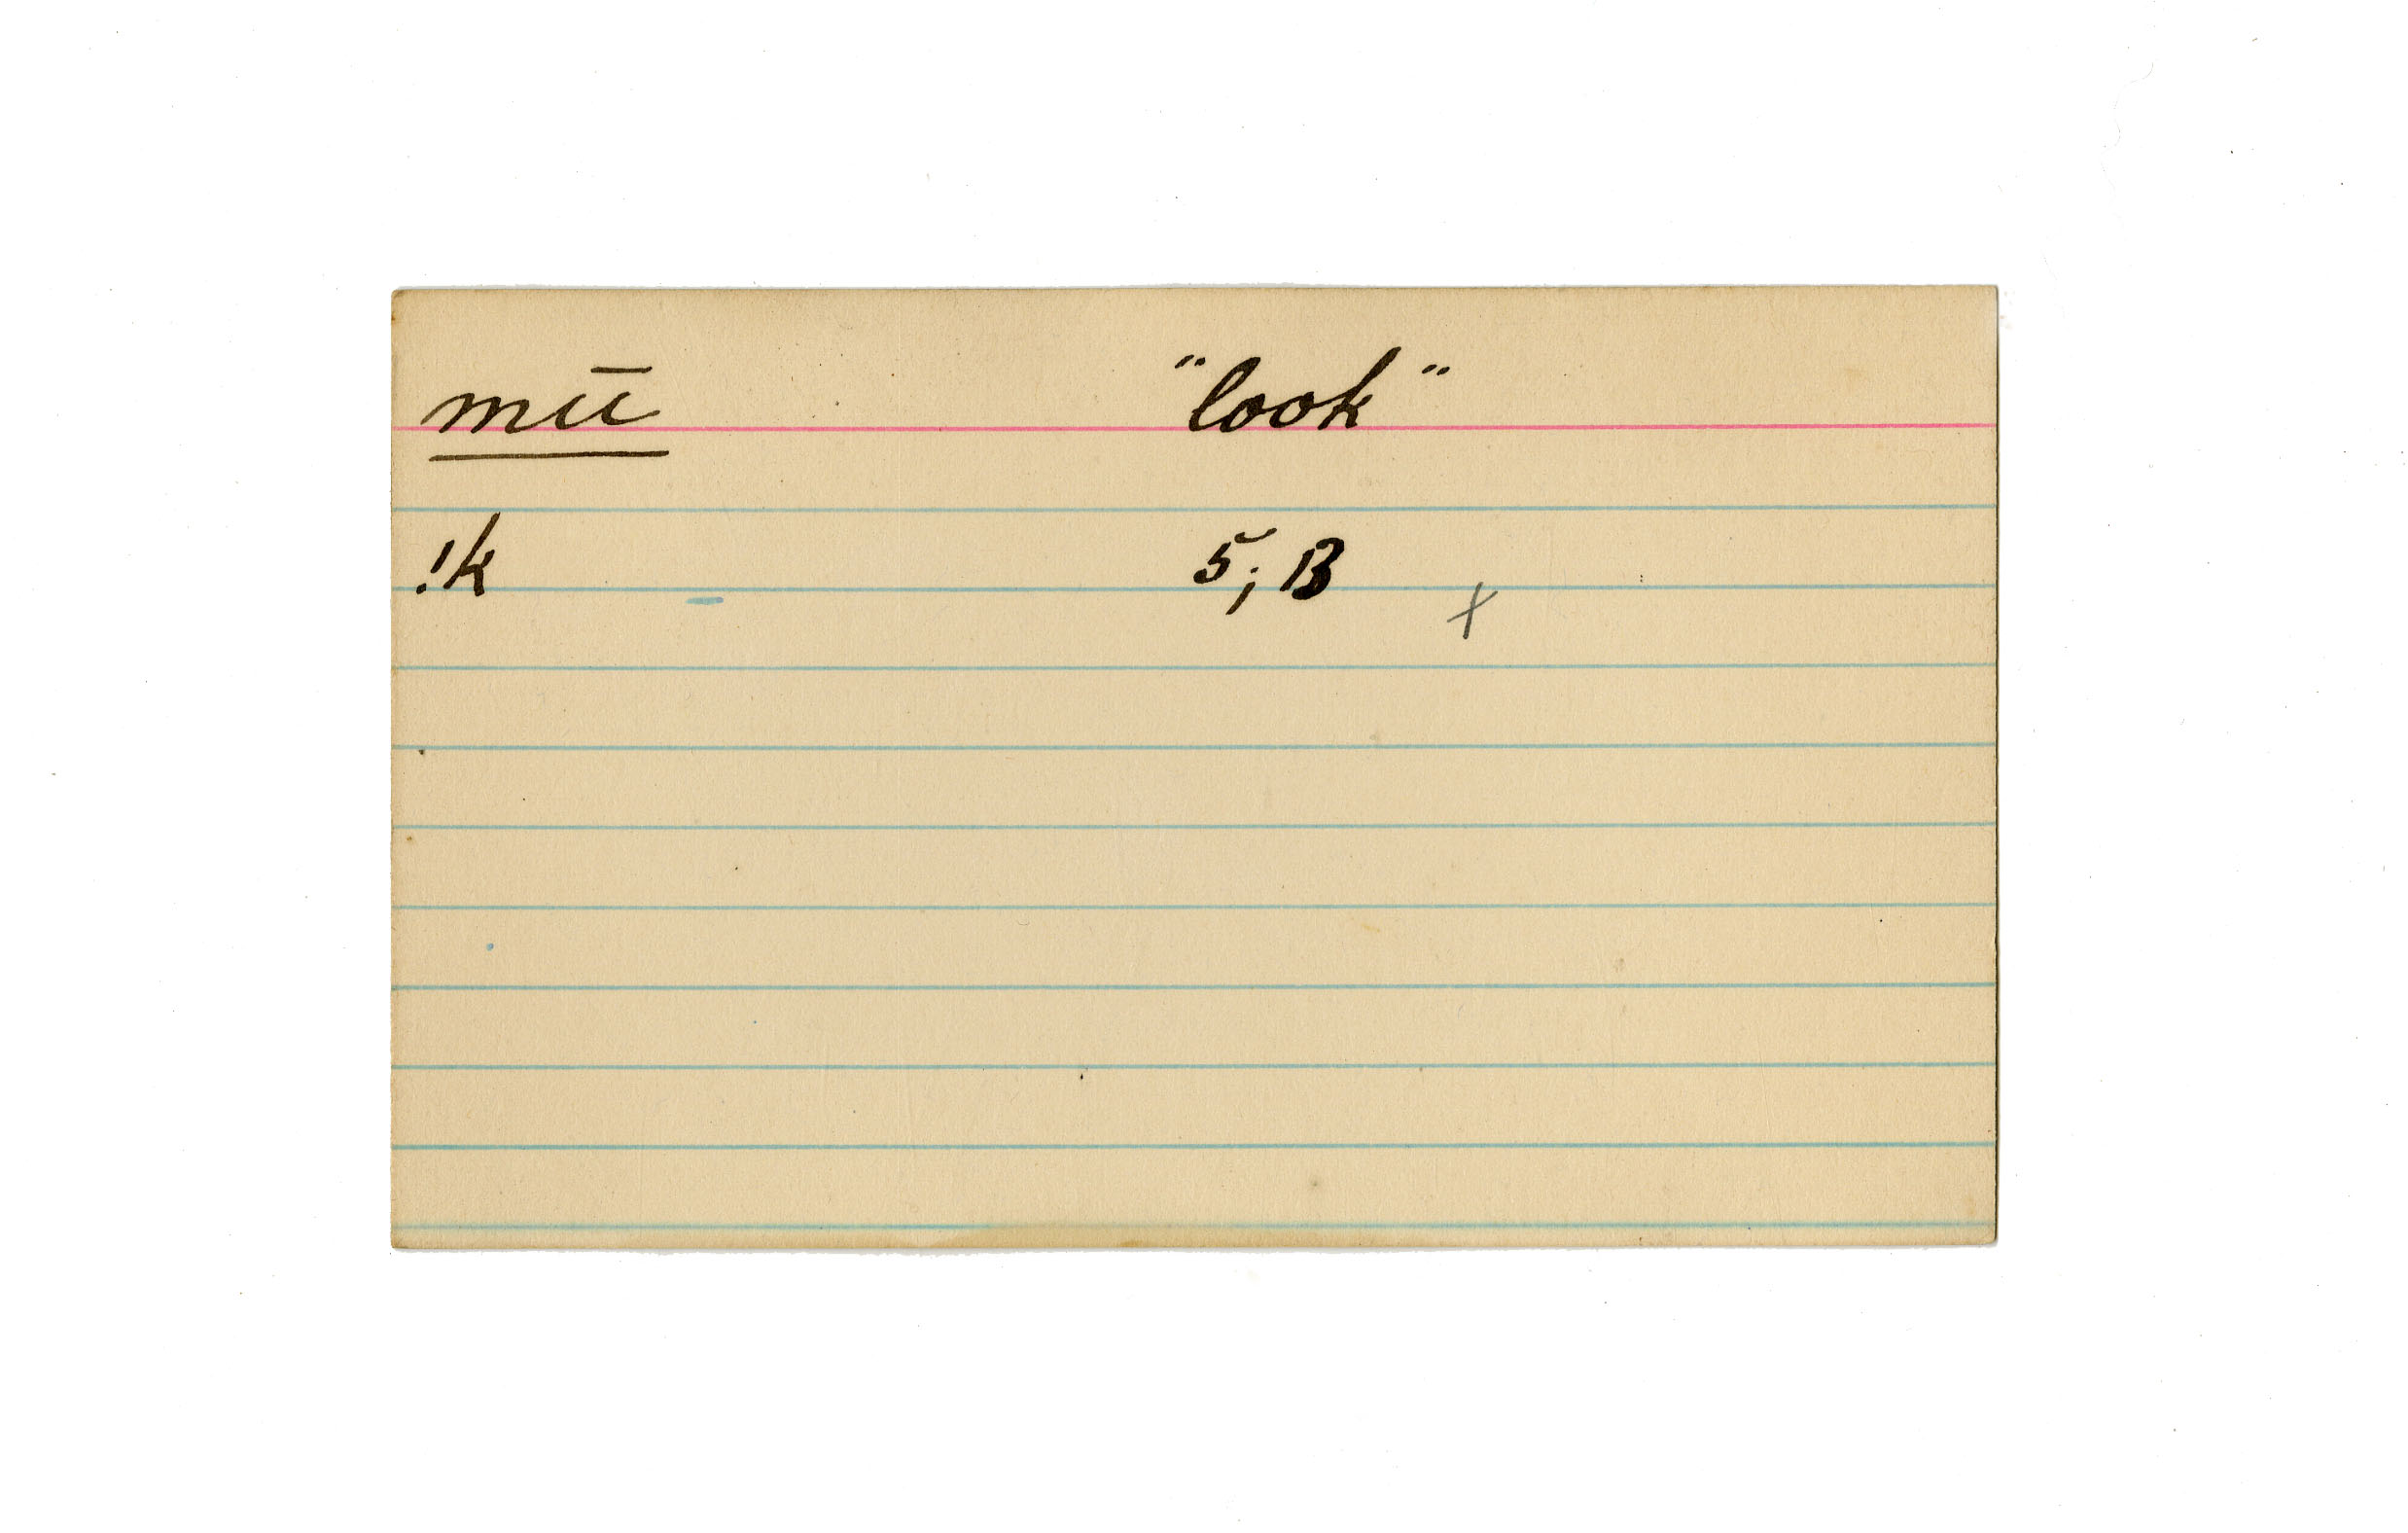 mū "look"
!k 5; B x